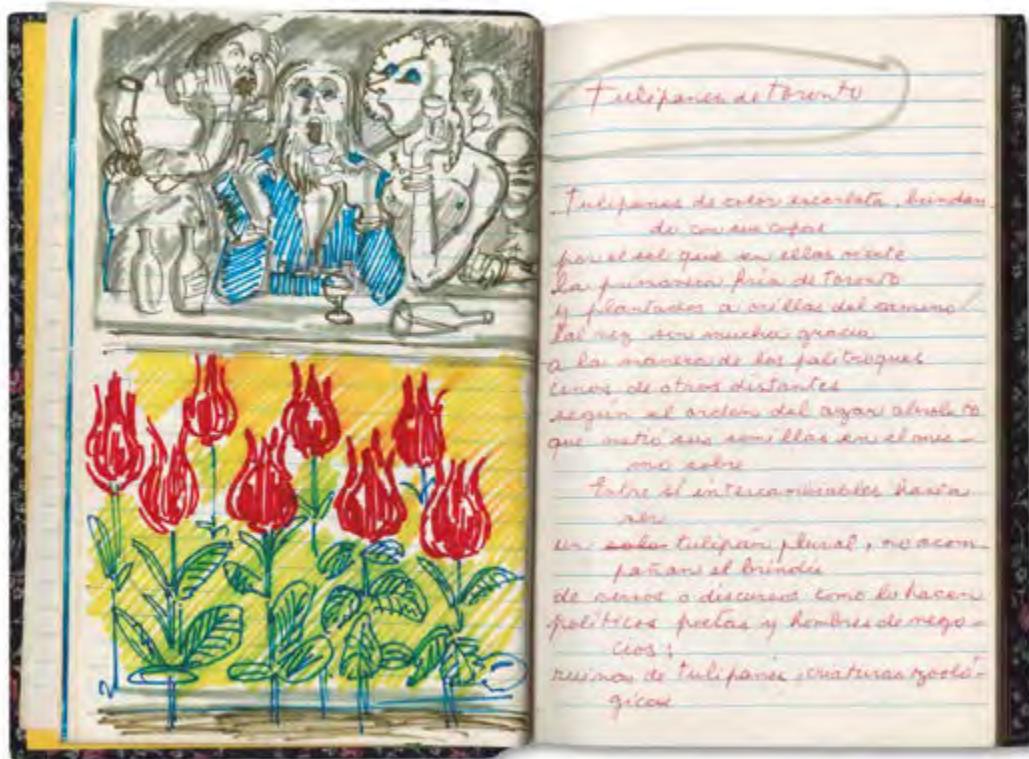 Tulipanes de toronto
Tulipanes de color escarlata, brindan
de con sus copas
por el sol que en ellas vierte
la primavera fría de toronto
y plantados a orillas del camino
tal vez sin mucha gracia
a la manera de los palitroques
unos de otros distantes
según el orden del azar absoluto
que metió sus semillas en el mis-
mo sobre
Entre sí intercambiables hasta
ser
un solo tulipán plural, no acom-
pañan el brindis
de versos o discursos como lo hacen
políticos poetas y hombres de nego-
cios;
ruinas de tulipanes, criaturas zooló-
gicas